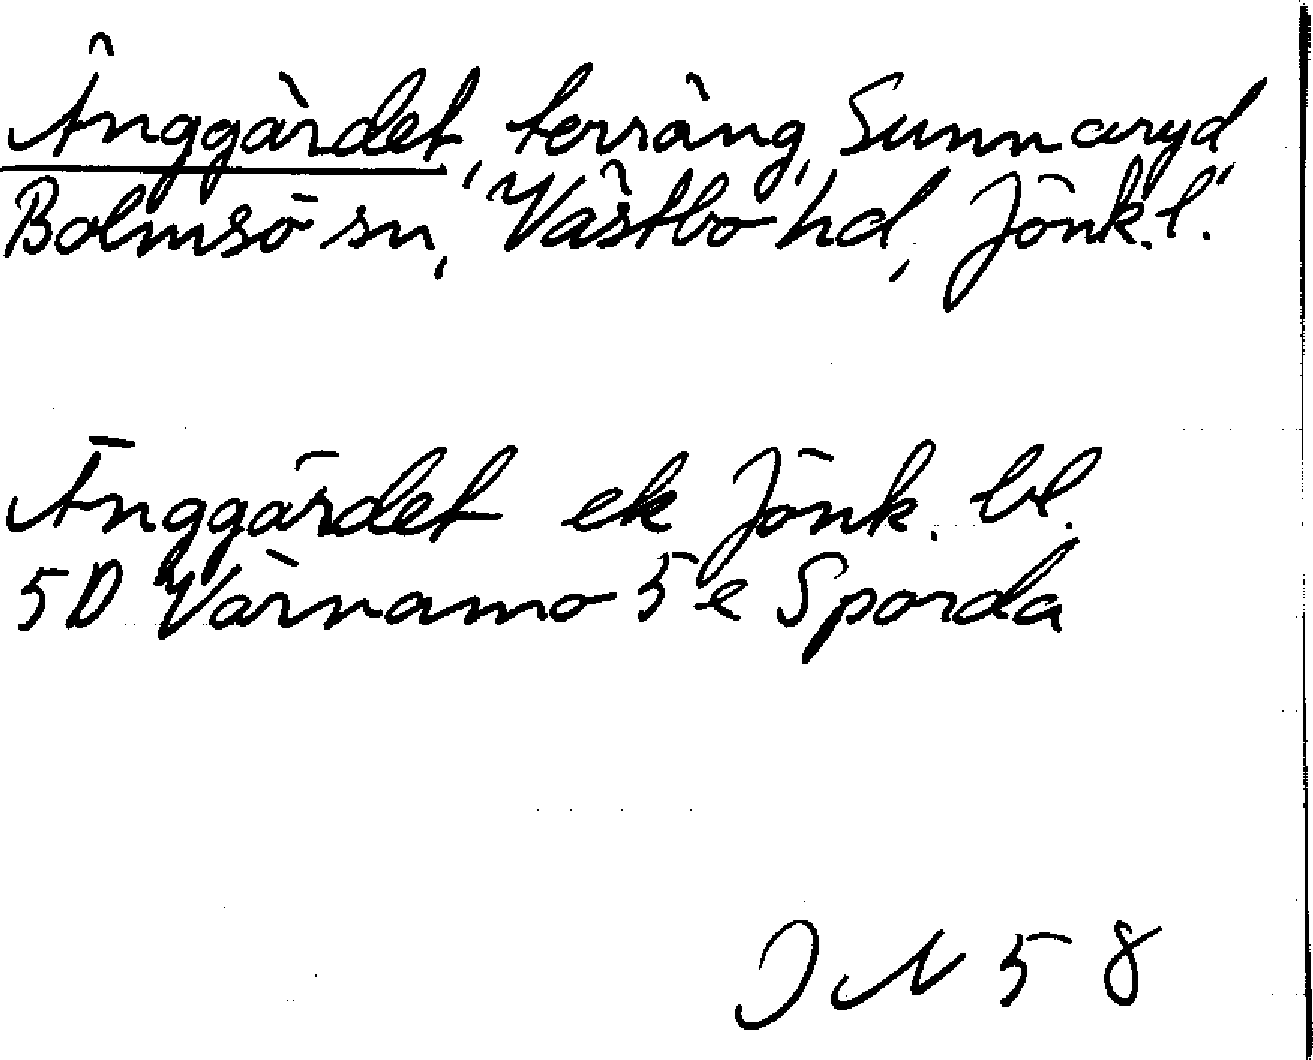 Änggärdet, terräng, Sunnaryd
Bolmsö sn, Västbo hd, Jönk.l.
Änggärdet ek Jönk. bl.
5D Värnamo 5e Sporda
JN 58